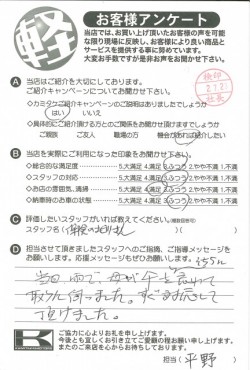 軽
お客様アンケート
当店では、お買い上げ頂いたお客様の声を可能
な限り現場に反映し、お客様により良い商品と
サービスを提供する事に努めています。
大変お手数ですが是非お声をお聞かせ下さい。
検印
2.7.21
社長
A 当店はご紹介を大切にしております。
ご紹介キャンペーンについてお聞かせ下さい。
◇カミタケご紹介キャンペーンのご説明はありましたでしょうか
はい いいえ
◇具体的にご紹介頂ける方とのご関係をお聞かせ頂けますでしょうか
ご親族 ご友人 職場の方 機会があれば紹介したい
B 当店を実際にご利用になった印象をお聞かせ下さい。
◇総合的な満足度 5.大満足 4.満足 3.ふつう 2.やや不満 1.不満
◇スタッフの対応 5.大満足 4.満足 3.ふつう 2.やや不満 1.不満
◇お店の雰囲気、清掃 5.大満足 4.満足 3.ふつう 2.やや不満 1.不満
◇納車時のお車の状態 5.大満足 4.満足 3.ふつう 2.やや不満 1.不満
C 評価したいスタッフがいれば教えてください。(複数回答可)
スタッフ名
D 担当させて頂きましたスタッフへのご指摘、ご指導メッセージを
お願いします。応援メッセージもぜひお願いします。
当日、雨で、母が
頂けました。
ご協力に心よりお礼を申し上げます。
今後とも宜しくお引き立てご愛顧の程お願い申し上げます。
またのご来店を心からお待ちしております。
担当(平野)